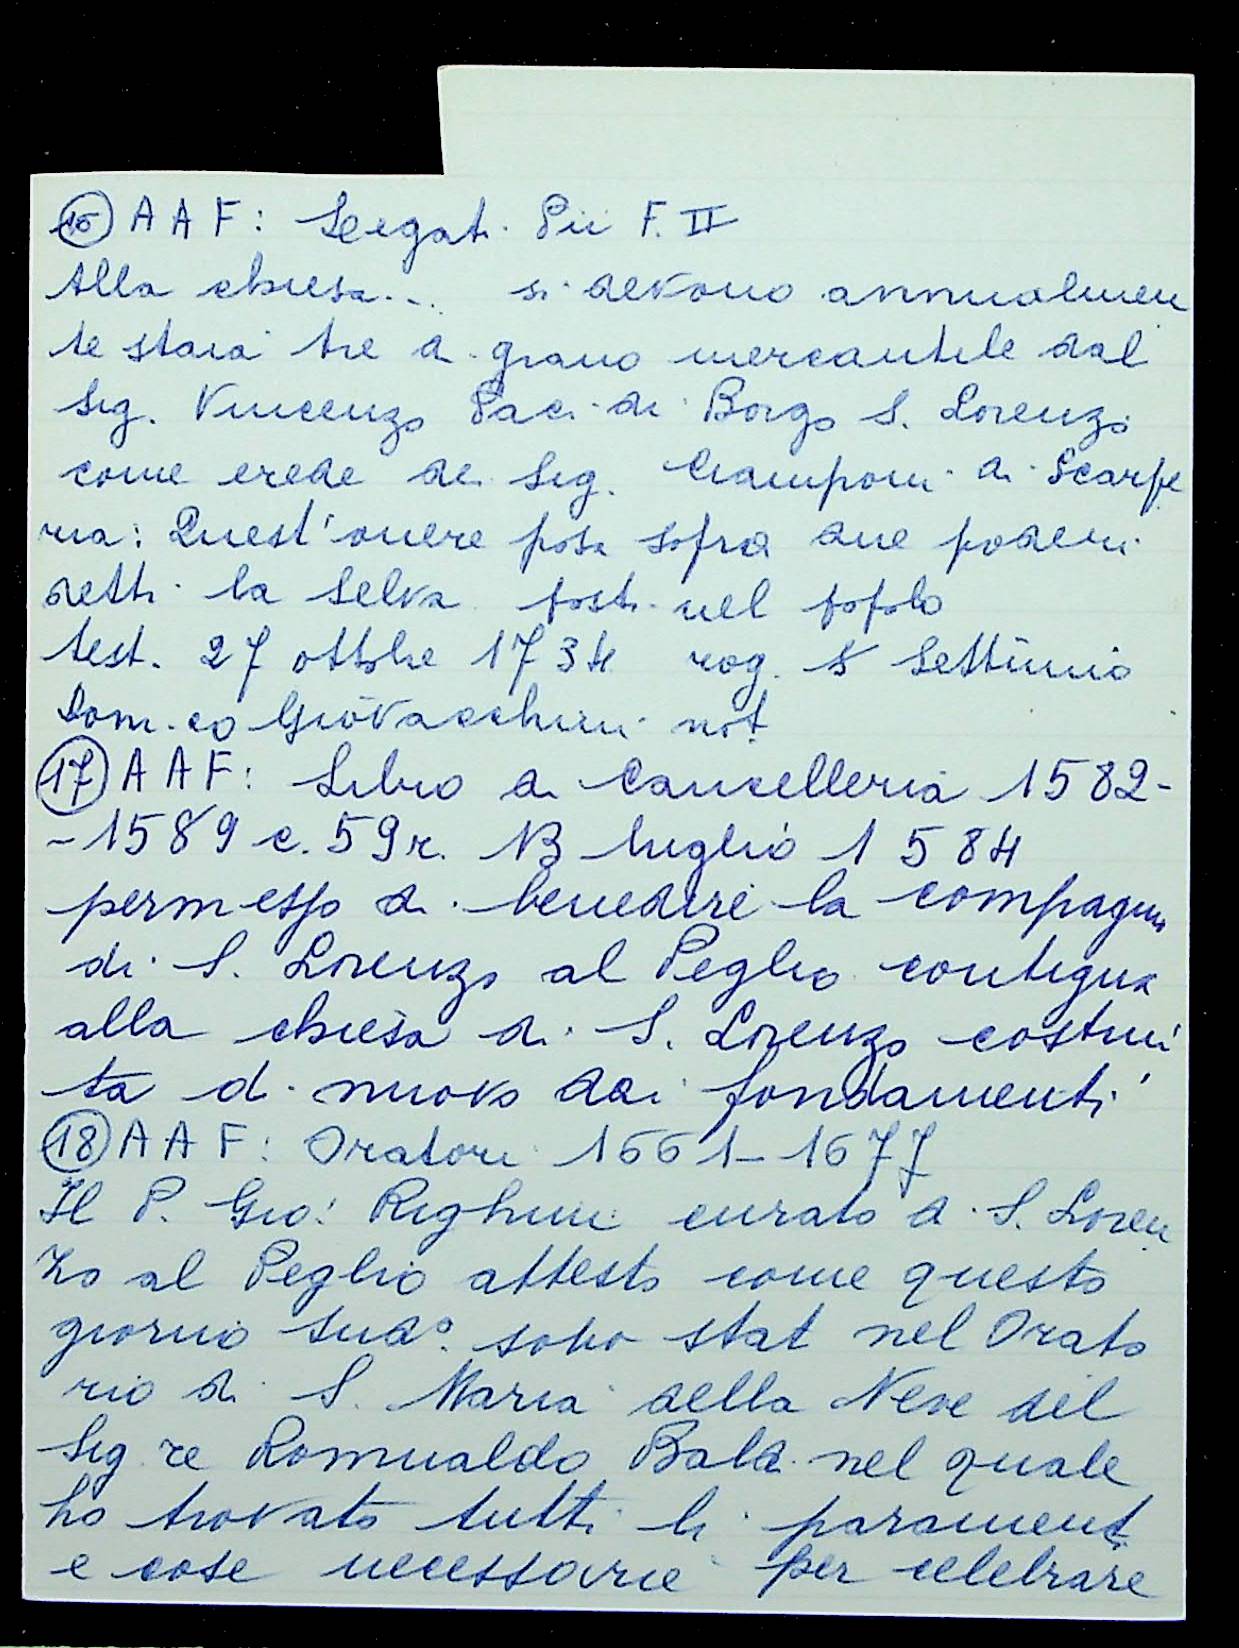 16 AAF: Legat. Pii F. II
Alla chiesa... si devono annualmen
te staia tre di grano mercantile dal
Sig. Vincenzo Paci di Borgo S. Lorenzo
come erede dei Sig. Ciamponi di Scarpe
ria: Quest'onere posa sopra due poderi
detti la Selva posti nel popolo
test. 27 ottobre 1734 rog. S Settimio
Dom.co Giovacchini not
17 AAF: Libro di Cancelleria 1582-
-1589 c. 59r. 13 luglio 1584
permesso di benedire la compagnia
di S. Lorenzo al Peglio contigua
alla chiesa di S. Lorenzo costrui
ta di nuovo dai fondamenti
18 AAF: Oratori 1661-1677
Il P. Gio: Righini curato di S. Loren
zo al Peglio attesto come questo
giorno sudo. sono stat nel Orato
rio di S. Maria della Neve del
Sig.re Romualdo Baldi nel quale
ho trovato tutti li parament
e cose necessarie per celebrare